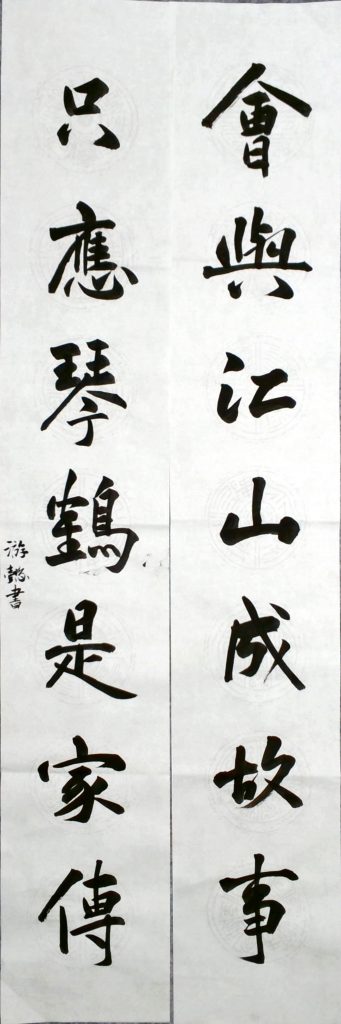 會與江山成故事
只應琴鶴是家傳
游懿書